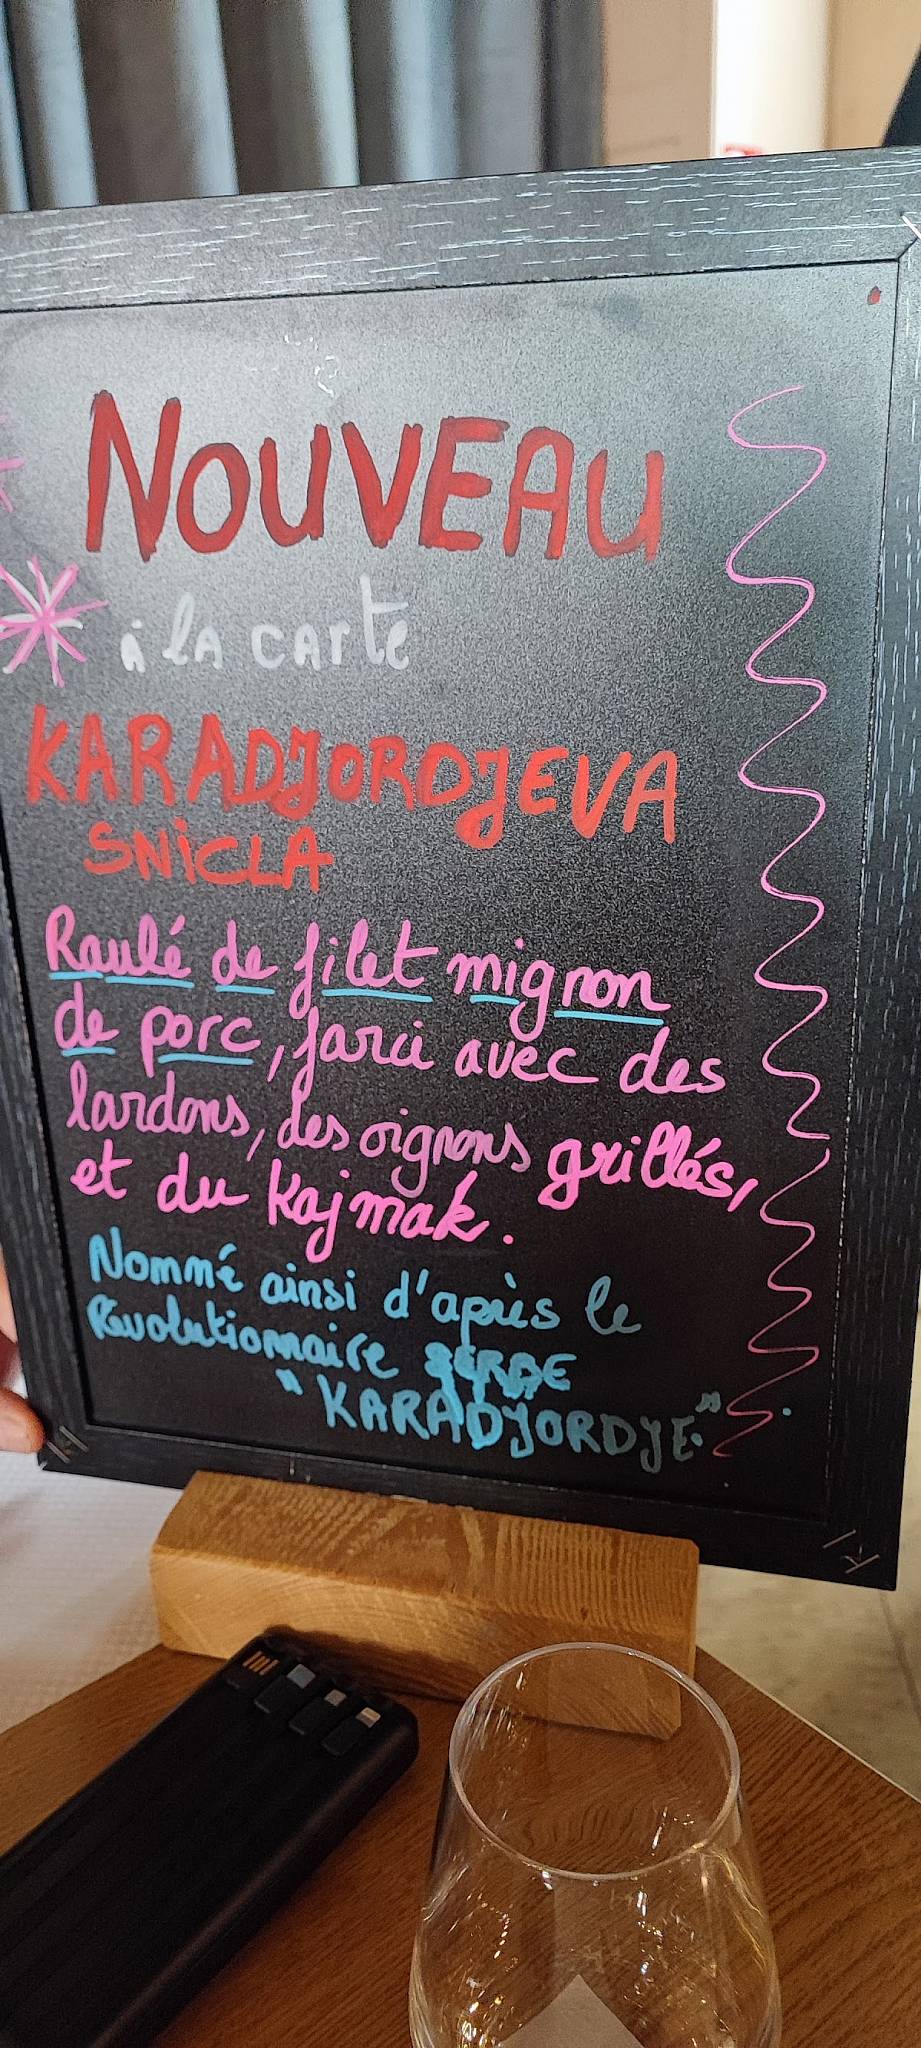 NOUVEAU
à la carte
KARADJORDJEVA
SNiCLA
Roulé de filet mignon
de porc, farci avec des
lardons, des oignons grillés,
et du kajmak.
Nommé ainsi d'après le
Révolutionnaire SERBE
"KARADJORDJE."